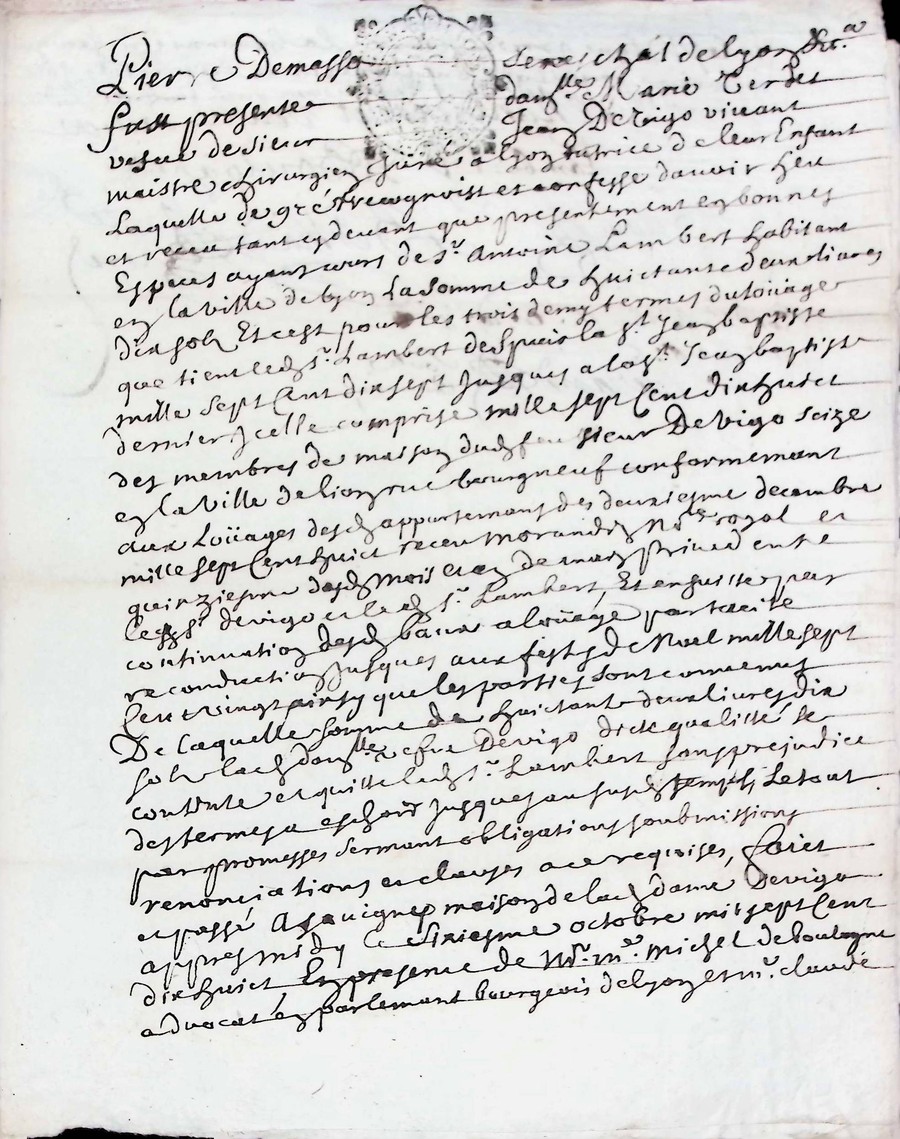 Pierre Demasso Seneschal de Lyon &c.a
fust presente dam.lle Marie Terdet
vefue de sieur Jean De Vigo viuant
maistre chirurgien juré a lyon tutrice de leur Enfant
Laquelle de gré a recognoist et confesse dauoir heu
et receu tant cydeuant que presentement en bonnes
Especes ayant cours de S.r Antoine Lambert habitant
en la ville de lyon La somme de huictante deux liures
dix solz Et cest pour les trois demy termes du loüage
que tient led S.r Lambert despuis la S.t Jean baptiste
mille sept Cent dix sept Jusques a la S.t Jean baptiste
dernier Jcelle comprise mille sept Cent dix huict
des membres de maison dud feu sieur De Vigo scize
en la Ville de lion rue bourgneuf conformement
aux Loüages desd appartements des deuxiesme decembre
mille sept Cent huict receu Morandin no.re royal et
quinziesme desd mois et an de main priuéd entre
lesd S.r devigo et led S.r Lambert, Et ensuitte par
continuation desd baux a loüage par tacite
reconduction jusques aux festes de Noel mille sept
Cent vingt ainsy que les parties sont conuenues
De laquelle somme de huictante deux liures dix
solz lad dam.lle vefue Devigo dicte qualitté se
contente et quitte led S.r Lambert sans prejudice
des termes a eschoir jusques au susd temps; Le tout
par promesses serment obligations soubmissions
renonciations et clauses a ce requises, faict
et passé A sauigne maison de lad dame Devigo
appres midy le sixiesme octobre mil sept Cent
dix huict En presence de M.r m.e Michel de boulogne
advocat en parlement bourgeois de lyon et m.r claude